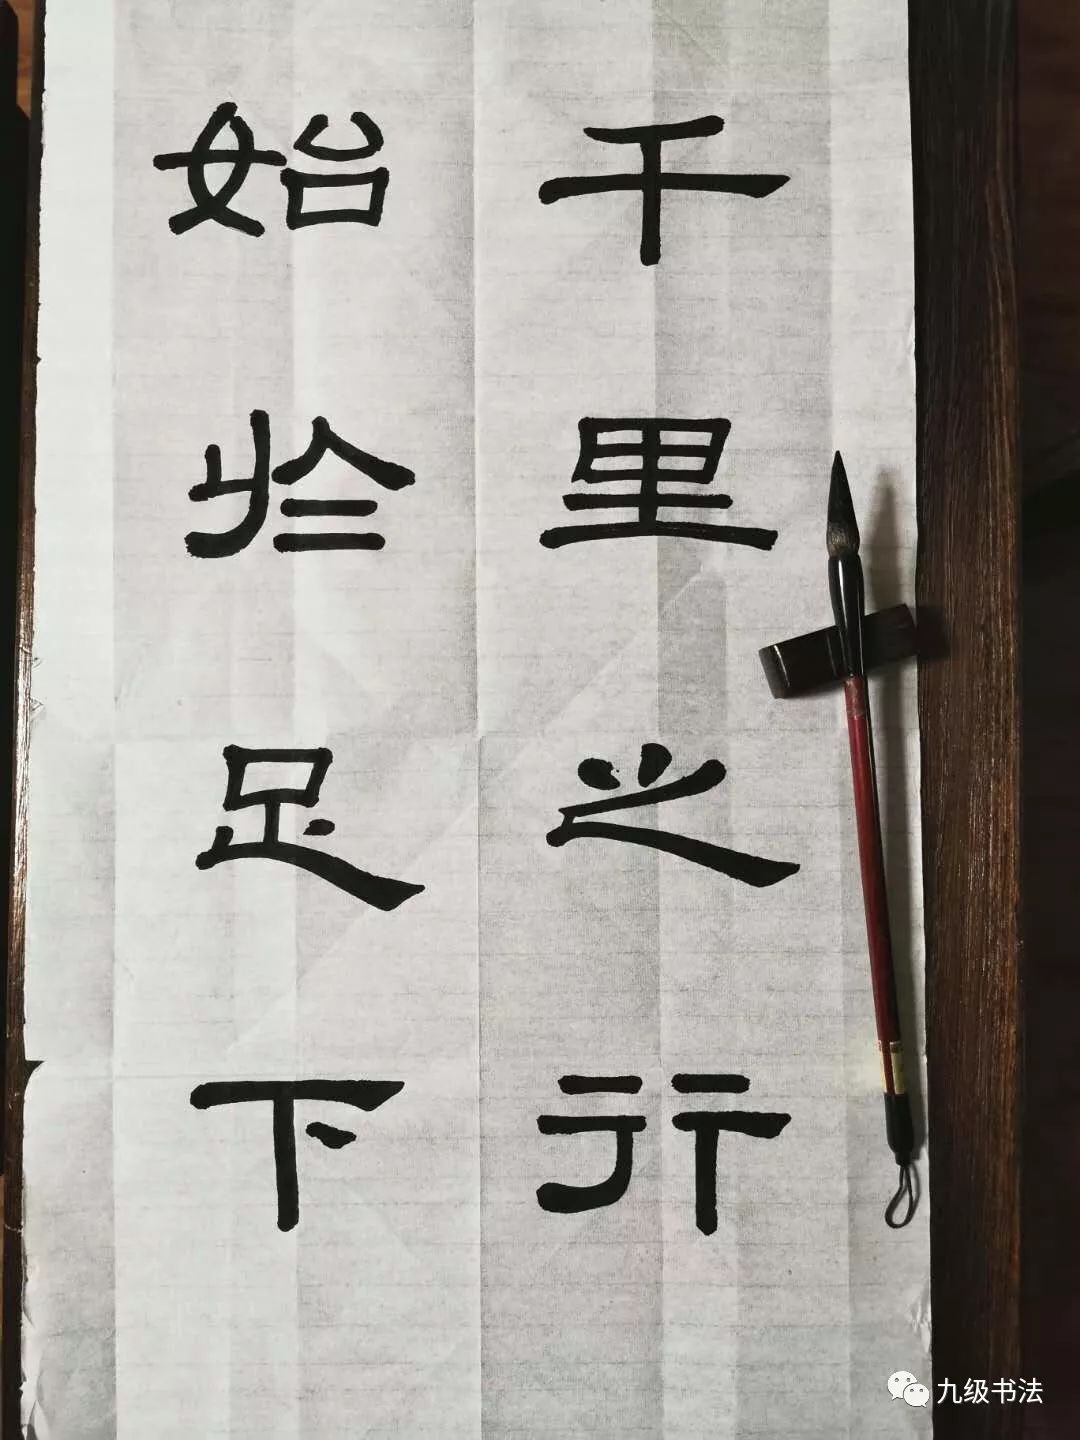 千里之行
始於足下
九级书法